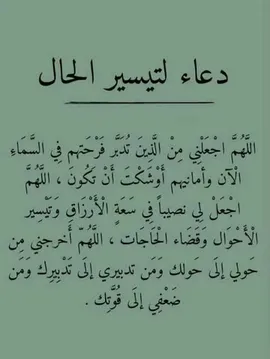 دعاء لتيسير الحال
اللَّهُمَّ اجْعَلْنِي مِنْ الَّذِينَ تُدَبَّر فَرْحَتهم فِي السَّمَاءِ
الْآن وأمانيهم أَوْشَكْتَ أَنْ تَكُونَ ، اللَّهُمَّ
اجْعَلْ لِي نصيباً فِي سَعَةِ الْأَرْزَاقِ وَتَيْسير
الْأَحْوَال وَقَضَاء الْحَاجَات ، اللَّهُمّ أَخرجني مِن
حَولي إلَى حَولك وَمَن تدبيري إلَى تَدْبِيرِك وَمَن
ضَعْفِي إلَى قُوَّتِك .